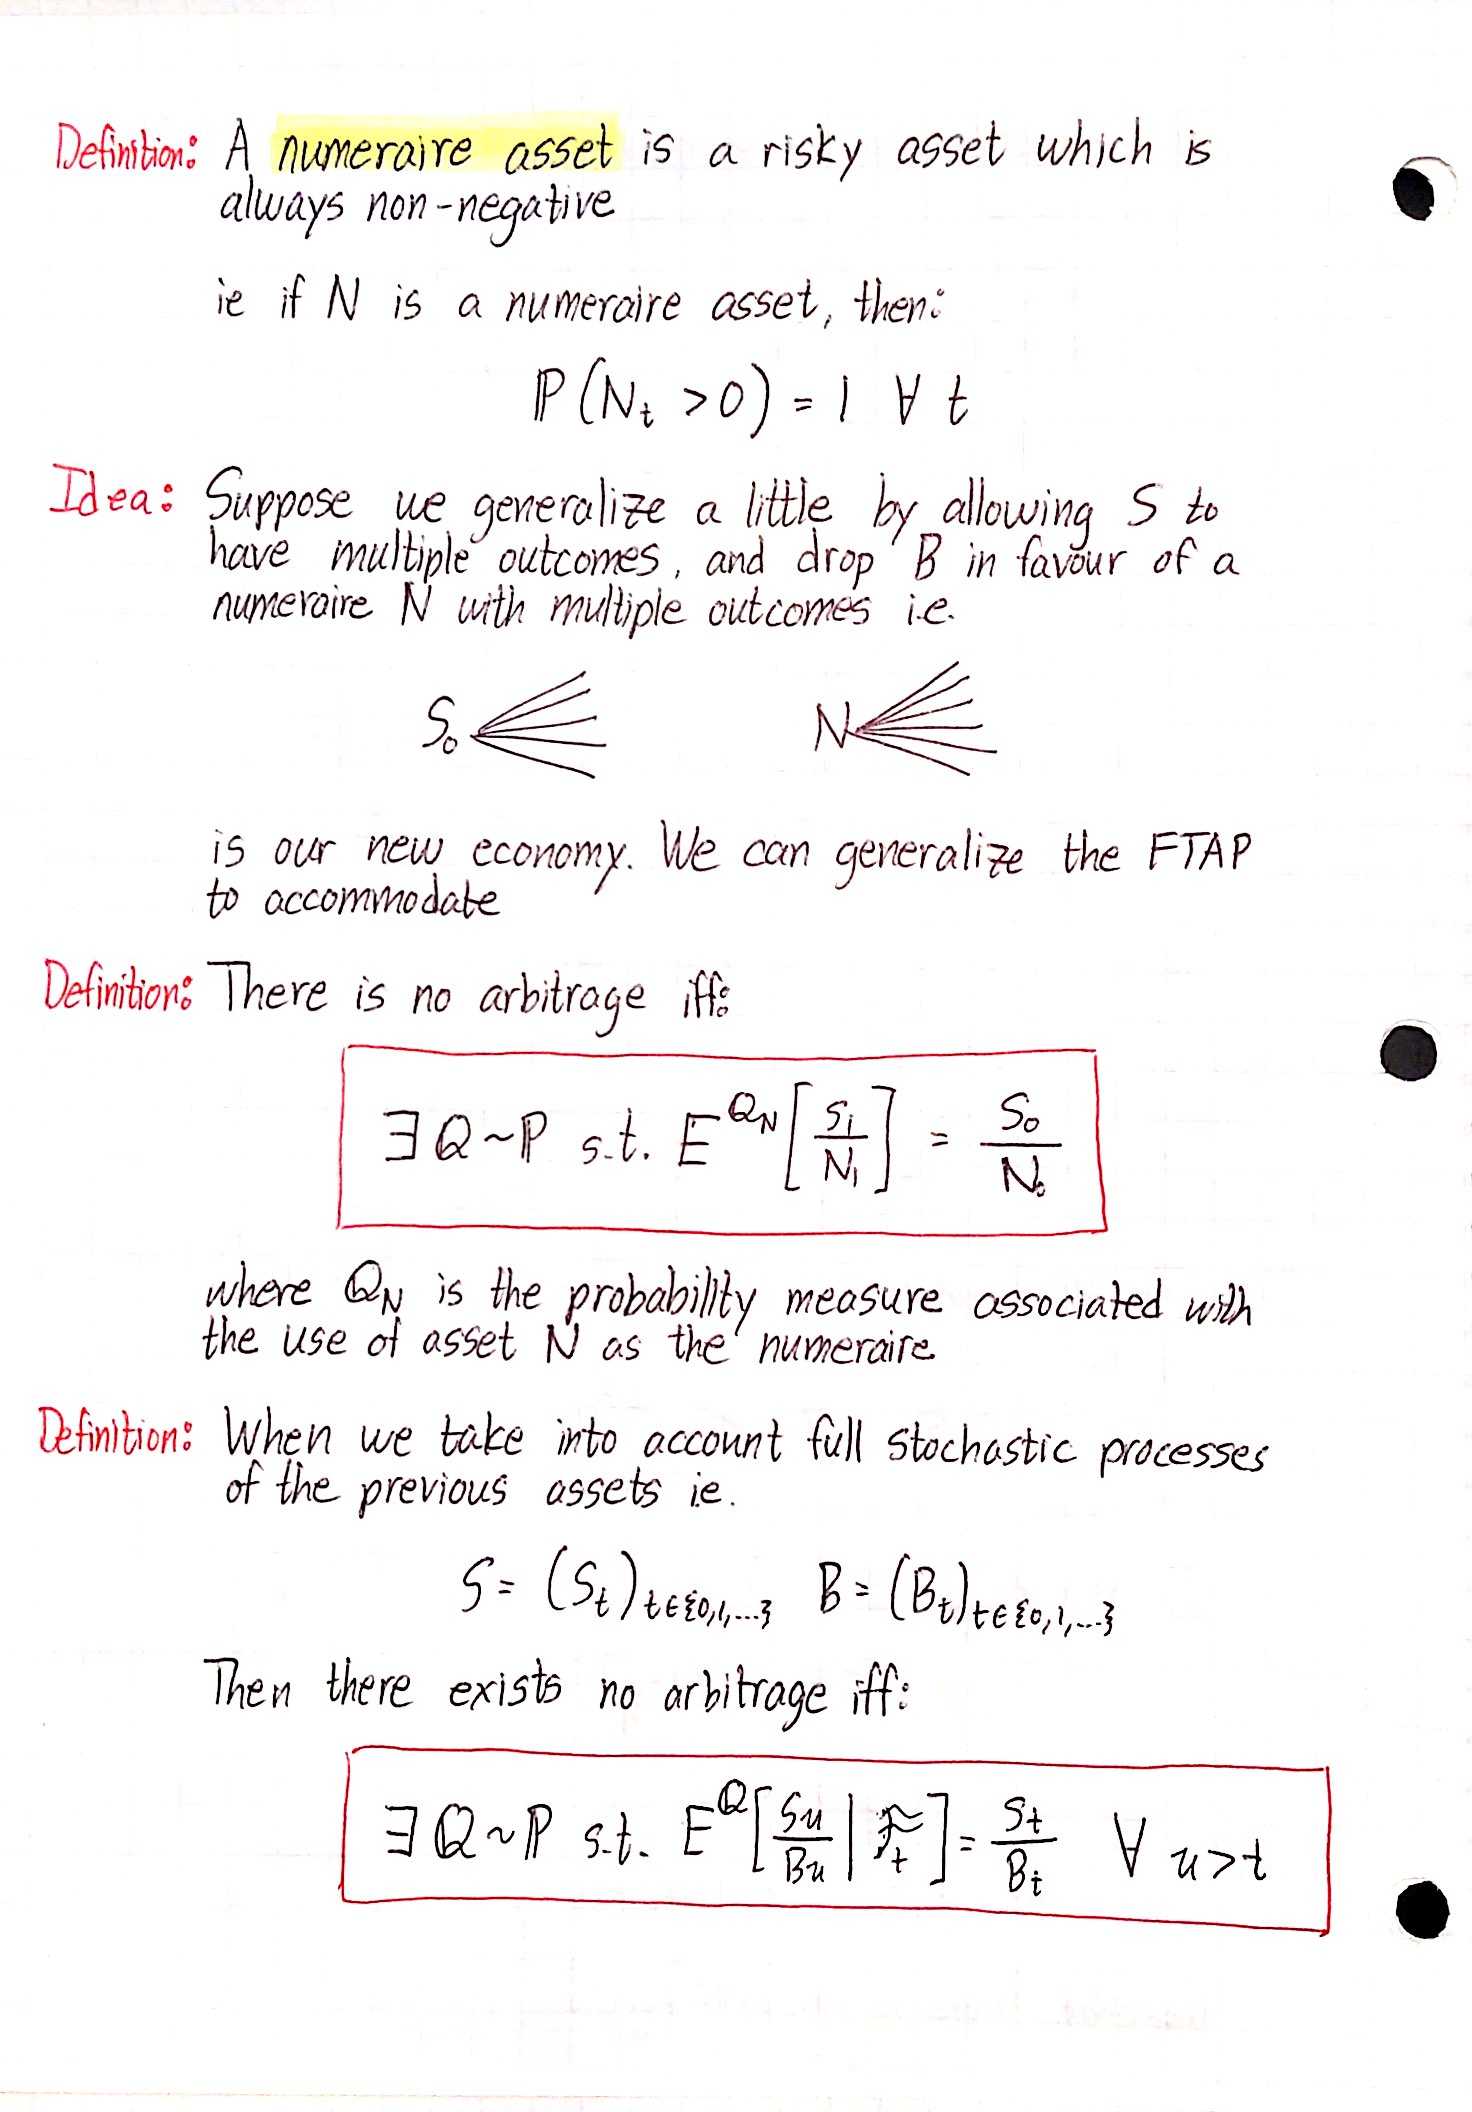 Definition: A numeraire asset is a risky asset which is
always non-negative
ie if N is a numeraire asset, then:
ℙ(N_t >0) = 1 ∀ t
Idea: Suppose we generalize a little by allowing S to
have multiple outcomes, and drop B in favour of a
numeraire N with multiple outcomes i.e.
S_0 N
is our new economy. We can generalize the FTAP
to accommodate
Definition: There is no arbitrage iff:
∃ Q~ℙ s.t. E^{Q_N}[S_1/N_1] = S_0/N_0
where Q_N is the probability measure associated with
the use of asset N as the numeraire
Definition: When we take into account full stochastic processes
of the previous assets ie.
S = (S_t)_{t∈{0,1,...}} B = (B_t)_{t∈{0,1,...}}
Then there exists no arbitrage iff:
∃ Q~ℙ s.t. E^Q[S_u/B_u | ℱ_t] = S_t/B_t ∀ u>t